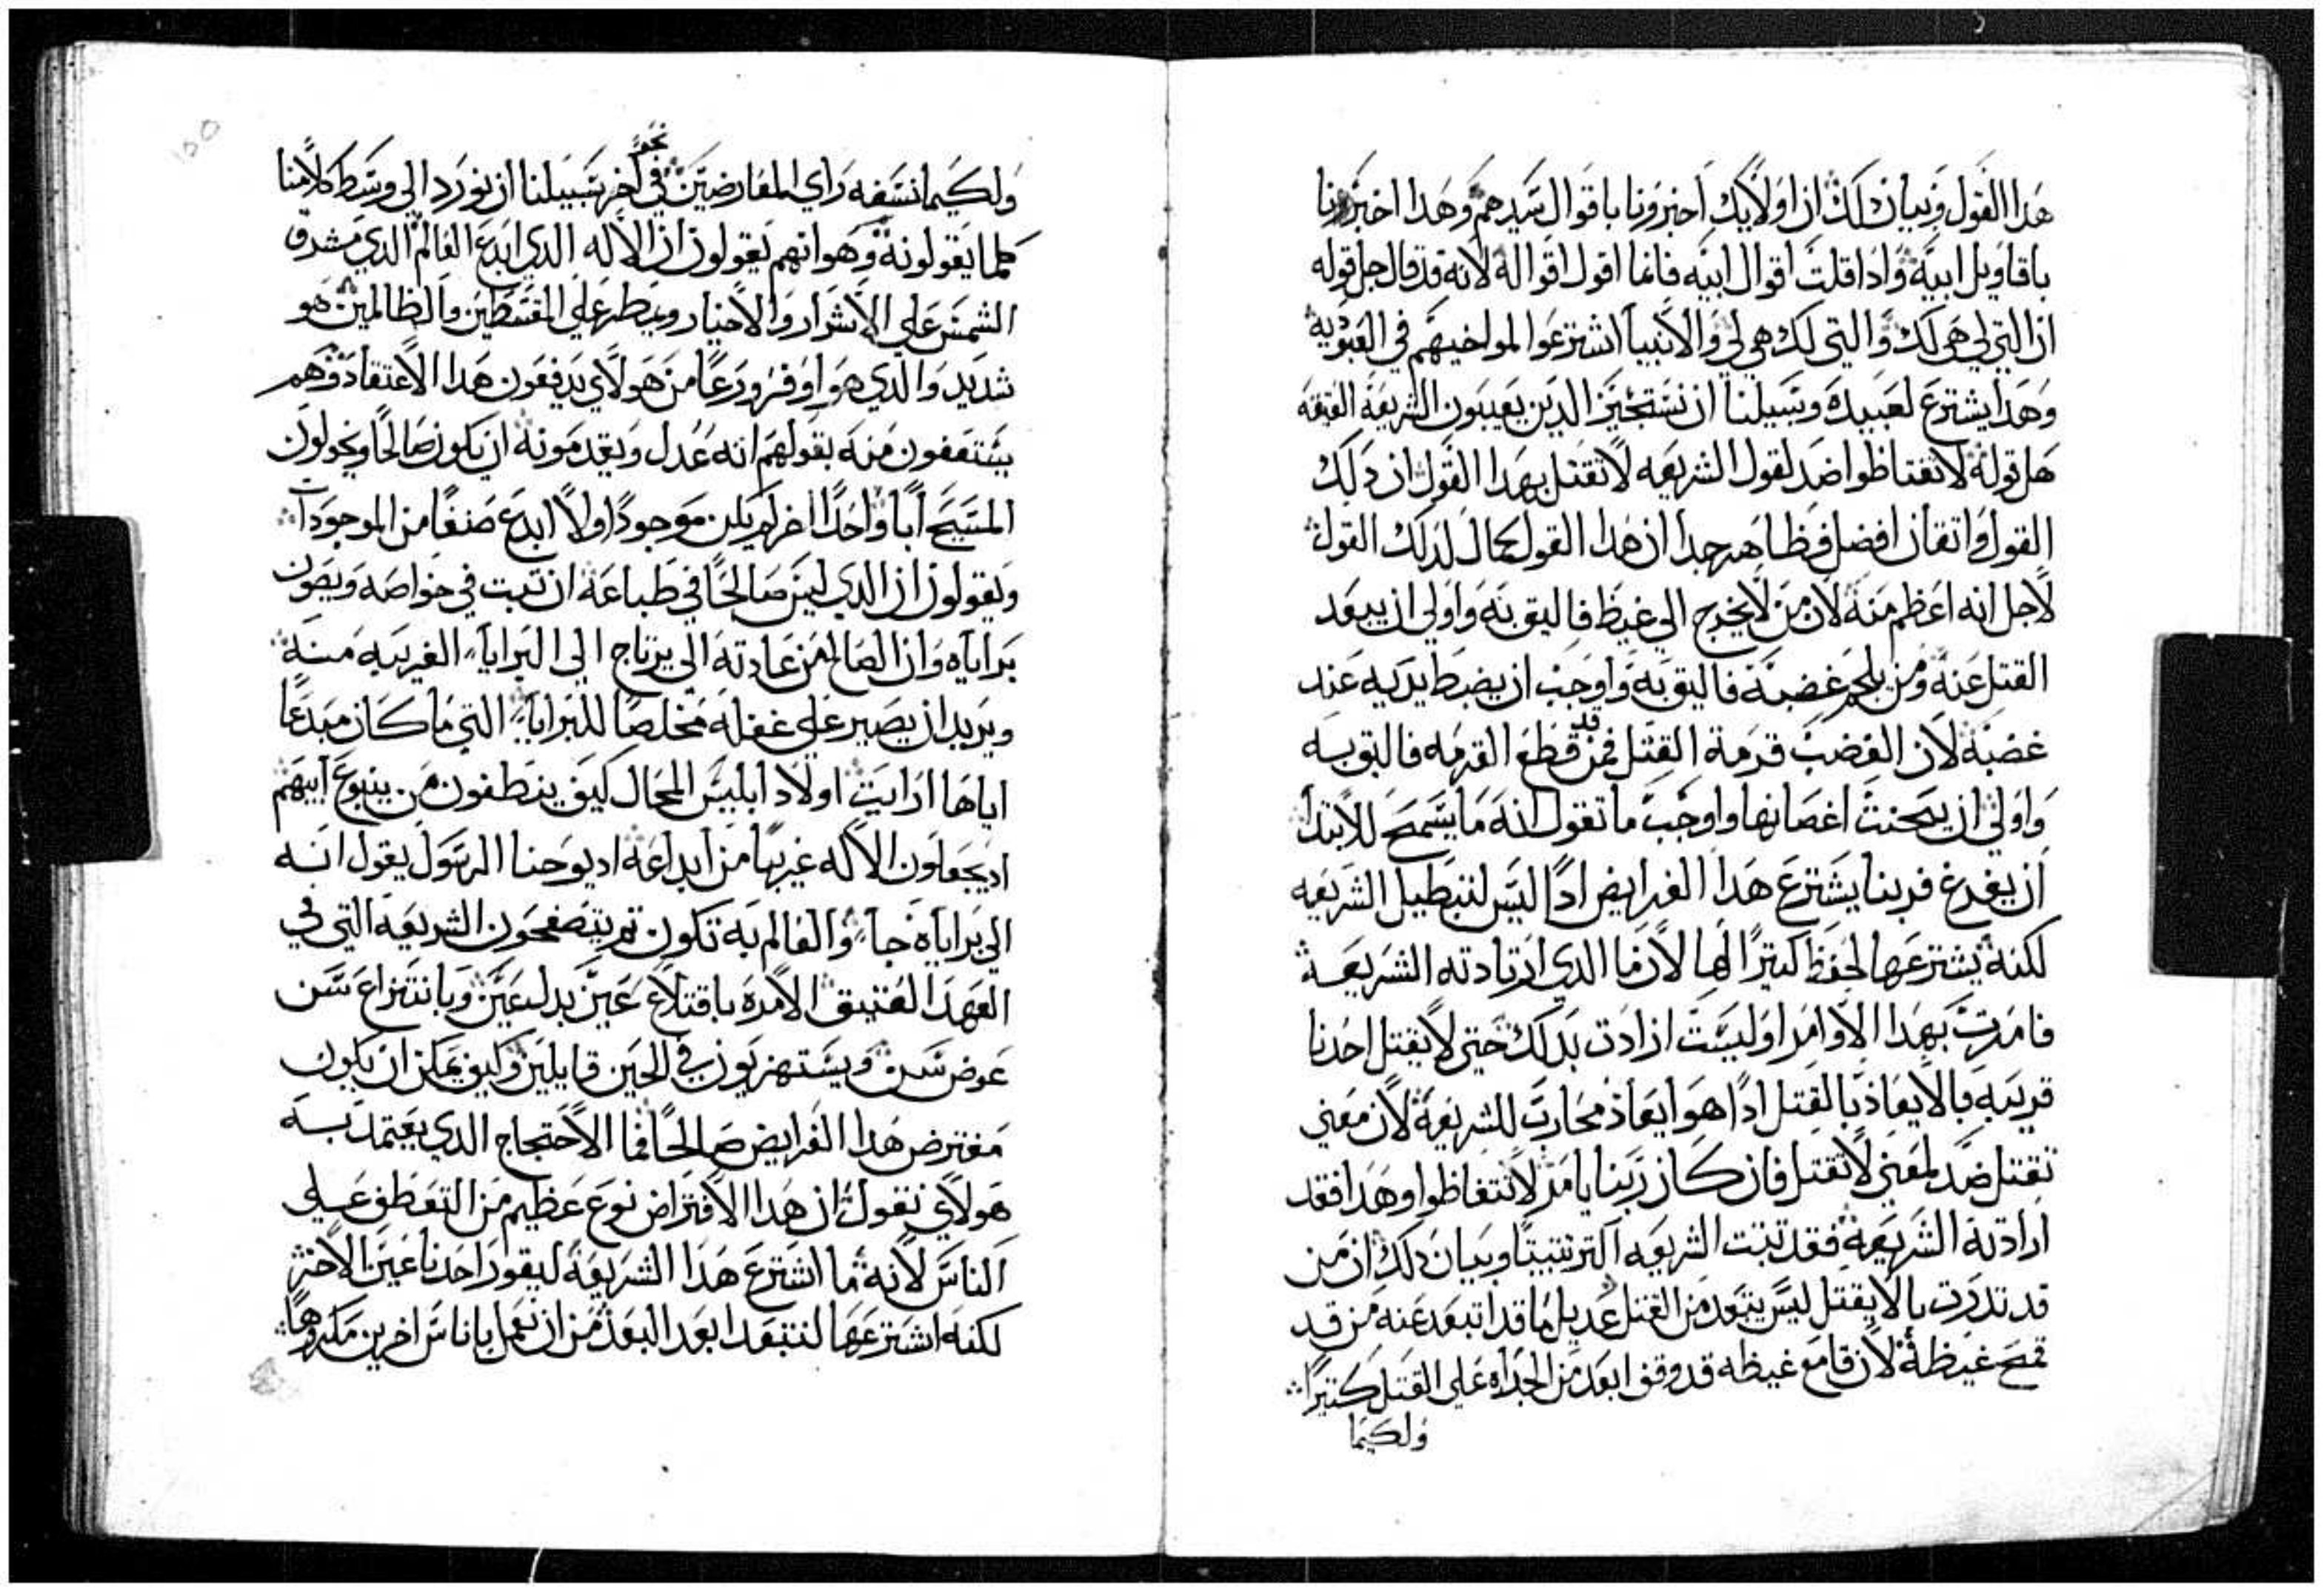 هدا القول وبيان دلك ان اولايك اخبرونا باقوال سيدهم وهدا اخبرنا
باقاويل ابيه وادا قلت اقوال ابيه فانما اقول اقواله لانه قد قال جل قوله
ان التي لي هي لك والتي لك هي لي والانبيا اشترعوا لمواخيهم في العبوديه
وهدا يشترع لعبيده وسبيلنا ان نستخبر الدين يعيبون الشريعه العتيقه
هل قوله لا تغتاظوا ضد لقول الشريعه لا تقتل بهدا القول ان دلك
القول واتقان افضل فظاهر جدا ان هدا القول كمال لدلك القول
لاجل انه اعظم منه لان من لا يخرج الي غيظ فاليق به واولي ان يبعد
القتل عنه ومن يلجم غضبه فاليق به واوجب ان يضبط يديه عند
غضبه لان الغضب قرمة القتل فمن قد قطع القرمه فاليق به
واولي ان يحنث اغصانها واوجب ما تقول انه ما يسمح للابتدا
ان يفرع فربنا يشترع هدا الفرايض ادا ليس لتبطيل الشريعه
لكنه يشترعها لحفظ كتيرا لها لان ما الدي ارتادته الشريعه
فامرت بهدا الاوامر اوليست ارادت بدلك حتي لا يقتل احدنا
قريبه فالايعاذ بالقتل ادا هو ايعاذ محارب للشريعه لان معني
تقتل ضد لمعني لا تقتل فان كان ربنا يامر لا تتغاظوا وهدا فقد
ارادته الشريعه فقد تبت الشريعه اكتر تتبيتا وبيان دلك ان من
قد تدرب بالا يقتل ليس يتبعد من القتل عديل ما قد اتبعد عنه من قد
قمح غيظه لان قامع غيظه قد وقف ابعد من الجداه علي القتل كتيرا
ولكيما
ولكيما نسفه راي المعارضين نحو في اخر سبيلنا ان نورد الي وسط كلامنا
كلما يقولونه وهو انهم يقولون ان الاله الدي ابدع العالم الدي يشرق
الشمس علي الاشرار والاخيار ويمطر علي المقسطين والظالمين هو
شديد والدي هو اوفر ورعا من هولاي يدفعون هدا الاعتقاد وهم
يستعفون منه بقولهم انه عدل ويعدمونه ان يكون صالحا ويخولون
المسيح ابا واحدا اخر لم يكن موجودا ولا ابدع صنفا من الموجودات
ويقولون ان الدي ليس صالحا في طباعه ان تبت في خواصه ويصون
براياه وان الصالح من عادته الي يرتاح الي البرايا الغريبه منه
ويريد ان يصير علي غفله مخلصا للبرايا التي ما كان مبدعا
اياها ارايت اولاد ابليس المحال كيف ينطفون من ينبوع ابيهم
اد يجعلون الاله غريبا من ابداعه اد يوحنا الرسول يقول انه
الي براياه جا والعالم به تكون تم يتصفحون الشريعه التي في
العهد العتيق الامره باقتلاع عين بدل عين وبانتزاع سن
عوض سن ويستهزيون في الحين قايلين وكيف يمكن ان يكون
مفترض هدا الفرايض صالحا فما الاحتجاج الدي يعتمد به
هولاي نقول ان هدا الافتراض نوع عظيم من التعطف علي
الناس لانه ما اشترع هدا الشريعه ليقور احدنا عين الاخر
لكنه اشترعها لنتبعد ابعد البعد من ان نعمل باناس اخرين مكروها